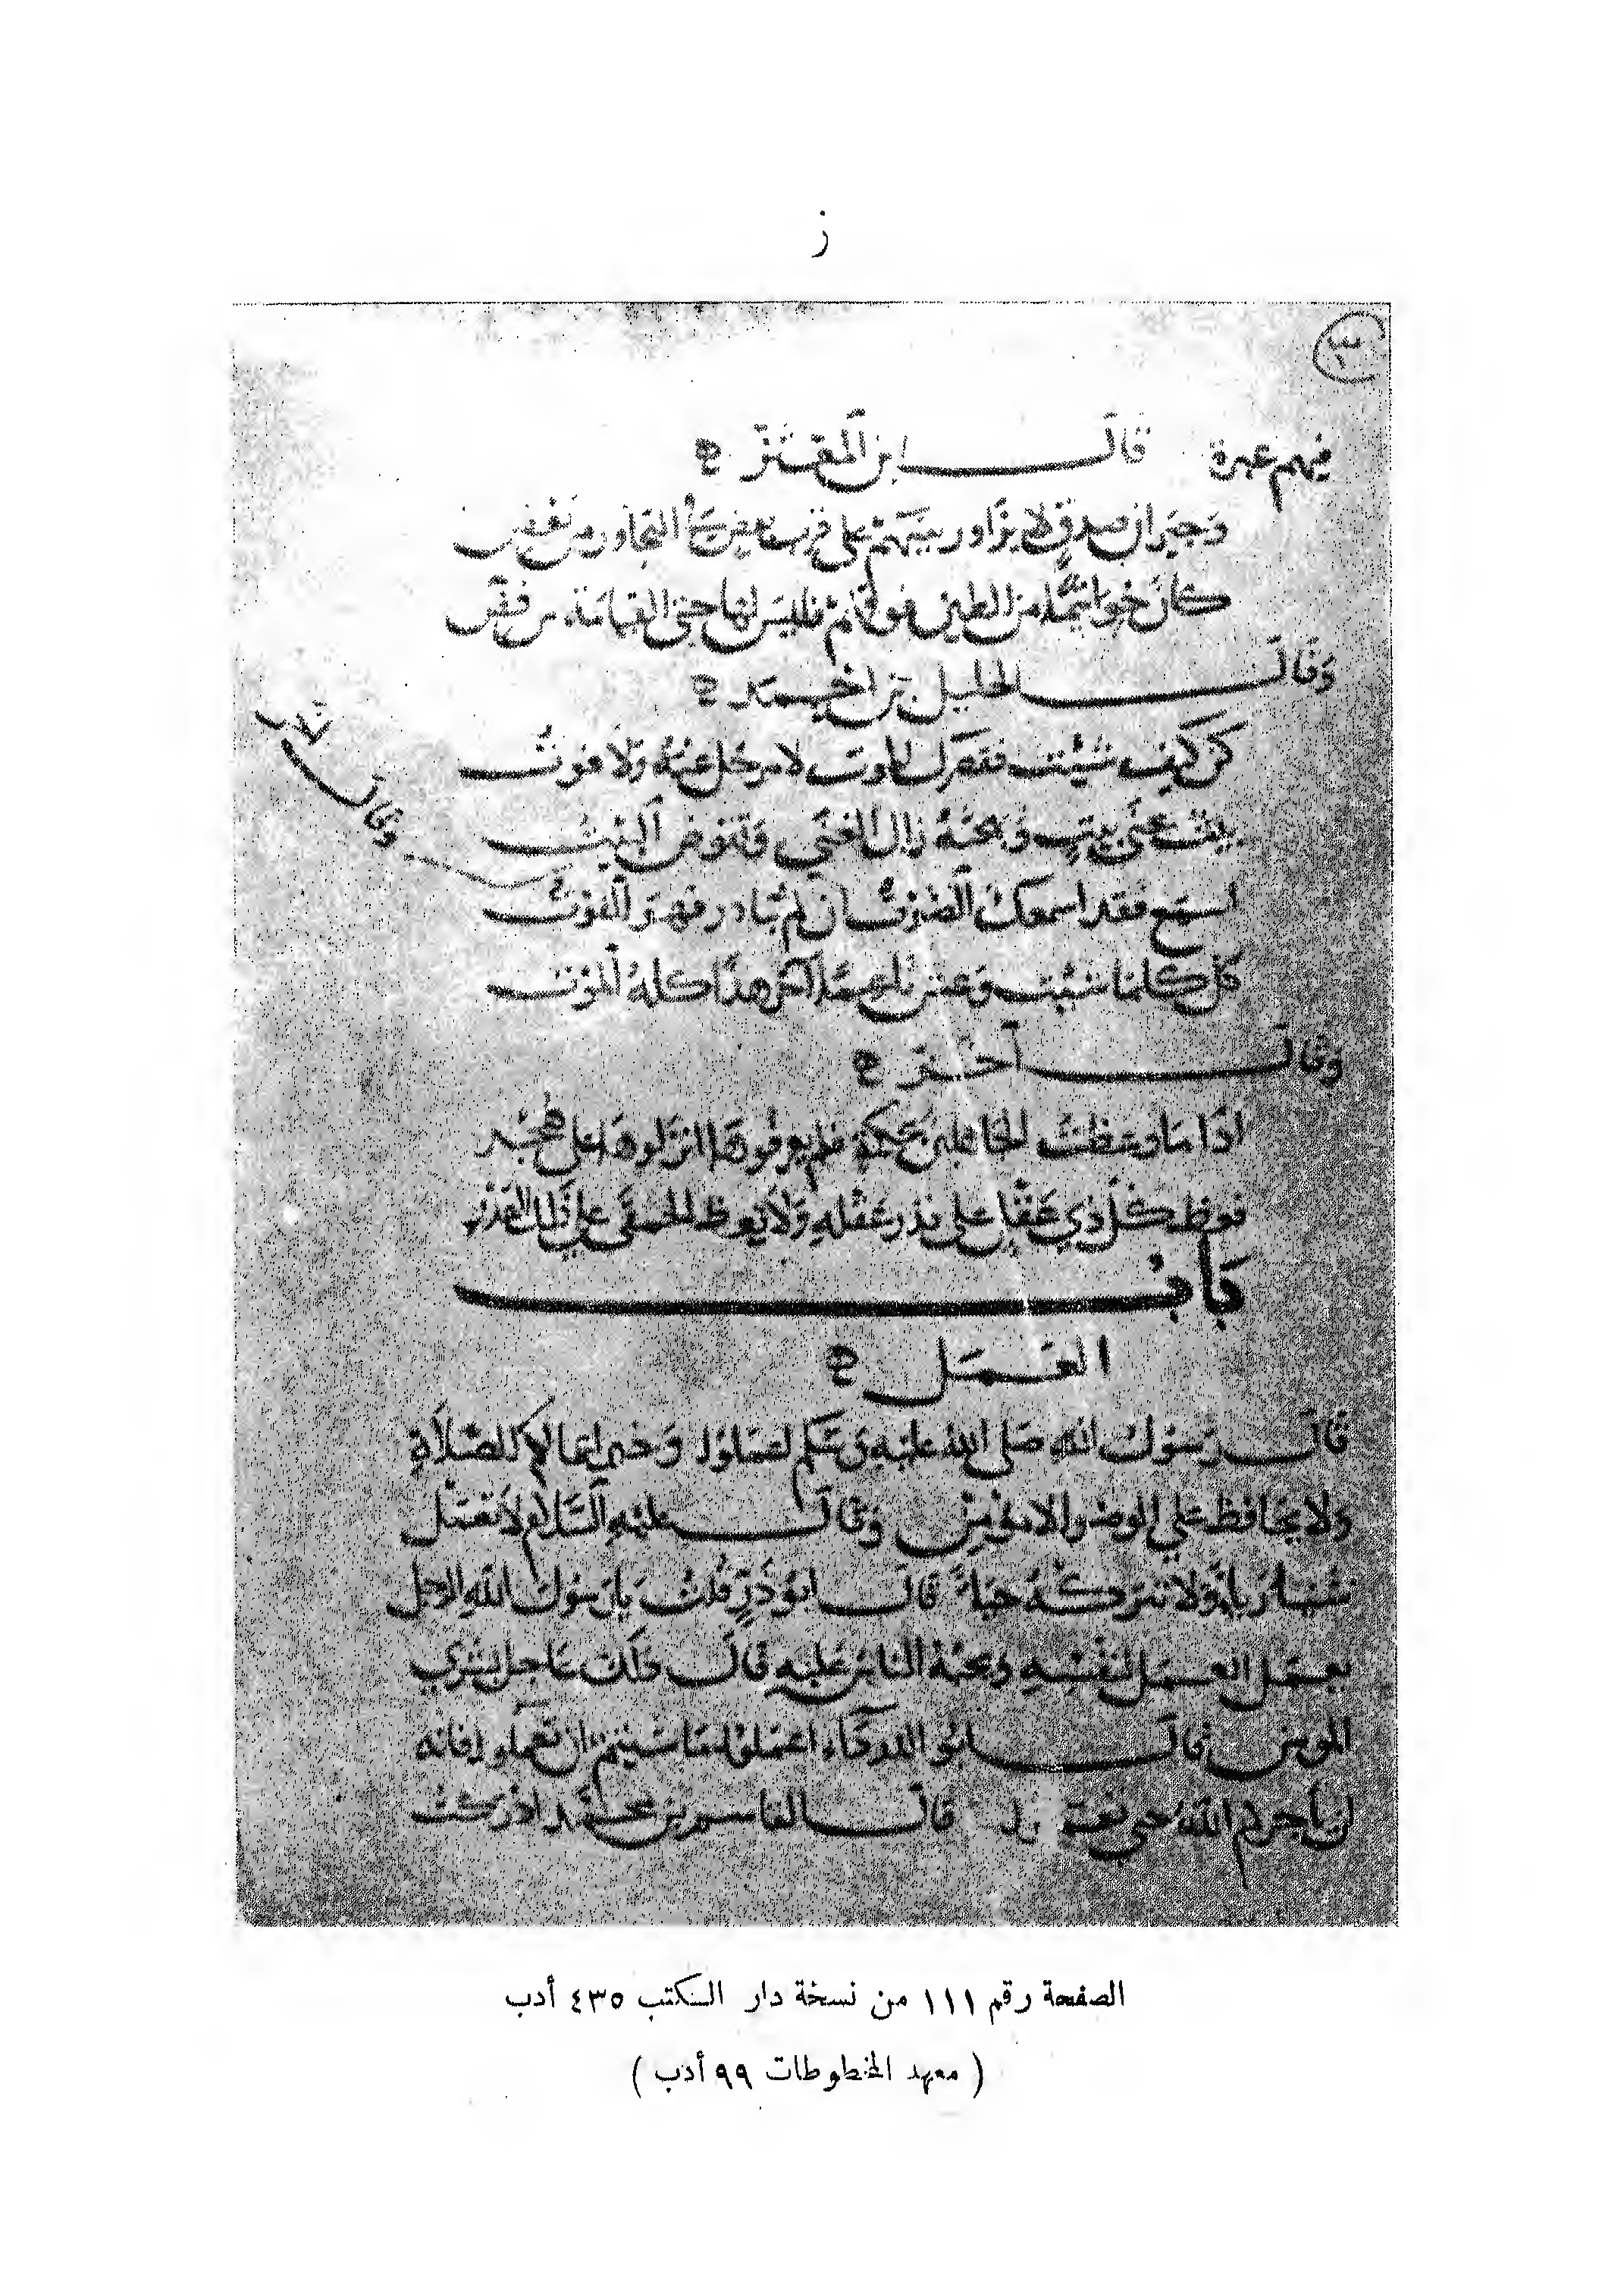 ز
٣
فيهم عبرة قال ابن المعتز
وجيران صدق لا تزاور بينهم على قرب بعض في التجاور من بعض
كأن خواتيما من الطين فوقهم فليس لها حتى القيامة من فض
وقال الخليل بن احمد
كن كيف شئت فقصرك الموت لا مزحل عنه ولا فوت
بينا غنى بيت وبهجته زال الغنى وتقوض البيت
وقال
اسمع فقد اسمعك الصوت ان لم تبادر فهو الفوت
كل كلما شئت وعش ناعما آخر هذا كله الموت
وقال آخر
اذا ما وعظت الجاهلين بحكمة فلم يعرفوها انزلوها على هجر
فعظ كل ذي عقل على قدر عقله ولا تعظ الحمقى على ذلك القدر
باب
العمل
قال رسول الله صلى الله عليه وسلم اعملوا وخير اعمالكم الصلاة
ولا يحافظ على الوضوء الا مؤمن وقال عليه السلام لا تعمل
شيئا رياء ولا تتركه حياء قال ابو ذر قلت يا رسول الله الرجل
يعمل العمل لنفسه ويحبه الناس عليه قال ذلك عاجل بشرى
المومن قال ابو الدرداء اعملوا ما شئتم ان تعملوا فانه
لن ياجركم الله حتى قال القاسم بن محمد ادركت
الصفحة رقم ١١١ من نسخة دار الكتب ٤٣٥ أدب
( معهد المخطوطات ٩٩ أدب )